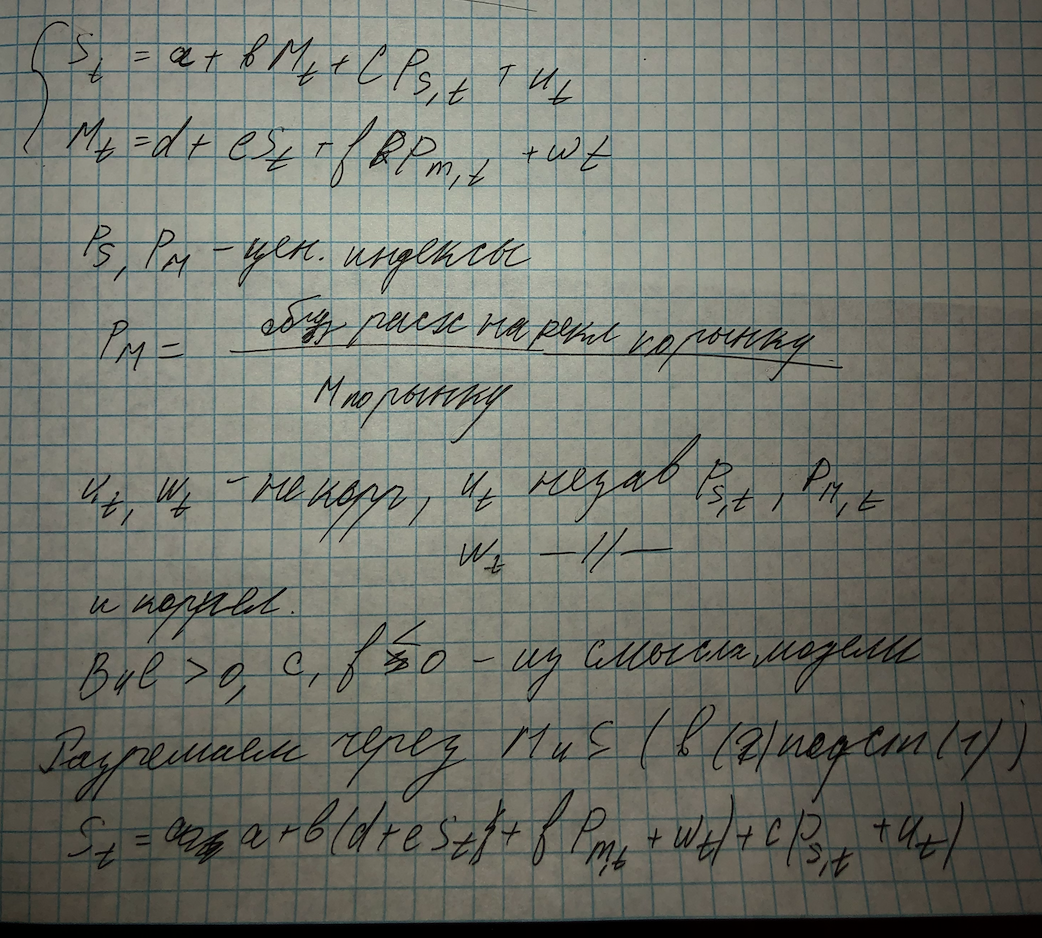 S_t = a + b M_t + C P_{S,t} + u_t
M_t = d + e S_t + f P_{m,t} + w_t
P_S, P_M – цен. индексы
P_M = общ расх на рекл по рынку
M по рынку
u_t, w_t – не корр, u_t незав P_{S,t}, P_{M,t}
w_t –//–
и коррел.
B и e > 0, c, f < 0 – из смысла модели
Разрешаем через M и S (в (2) подст (1))
S_t = a + b(d + e S_t + f P_{m,t} + w_t) + c P_{S,t} + u_t)